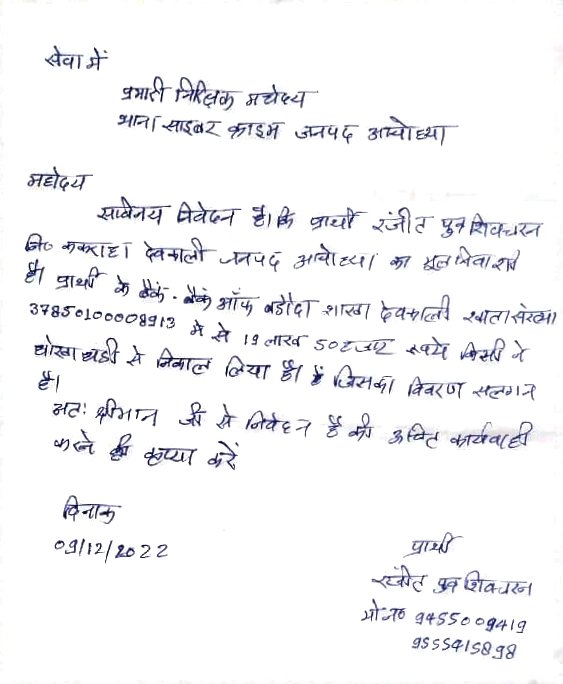 सेवा में
प्रभारी निरिक्षक महोदय
थाना साइबर क्राइम जनपद अयोध्या
महोदय
सविनय निवेदन है। कि प्रार्थी रंजीत पुत्र शिवचरन
नि० ककराहा देवकाली जनपद अयोध्या का मूल निवाशी
है। प्रार्थी के बैंक - बैंक ऑफ बडौदा शाखा देवकाली खाता संख्या
37850100008913 मे से 19 लाख 50 हजार रूपये किसी ने
धोखाधडी से निकाल लिया है। है जिसका विवरण सलगन
है।
अतः श्रीमान जी से निवेदन है की उचित कार्यवाही
करने की कृप्या करें
दिनाक
09/12/2022
प्रार्थी
रंजीत पुत्र शिवचरन
मो०न० 9455009419
9555415898